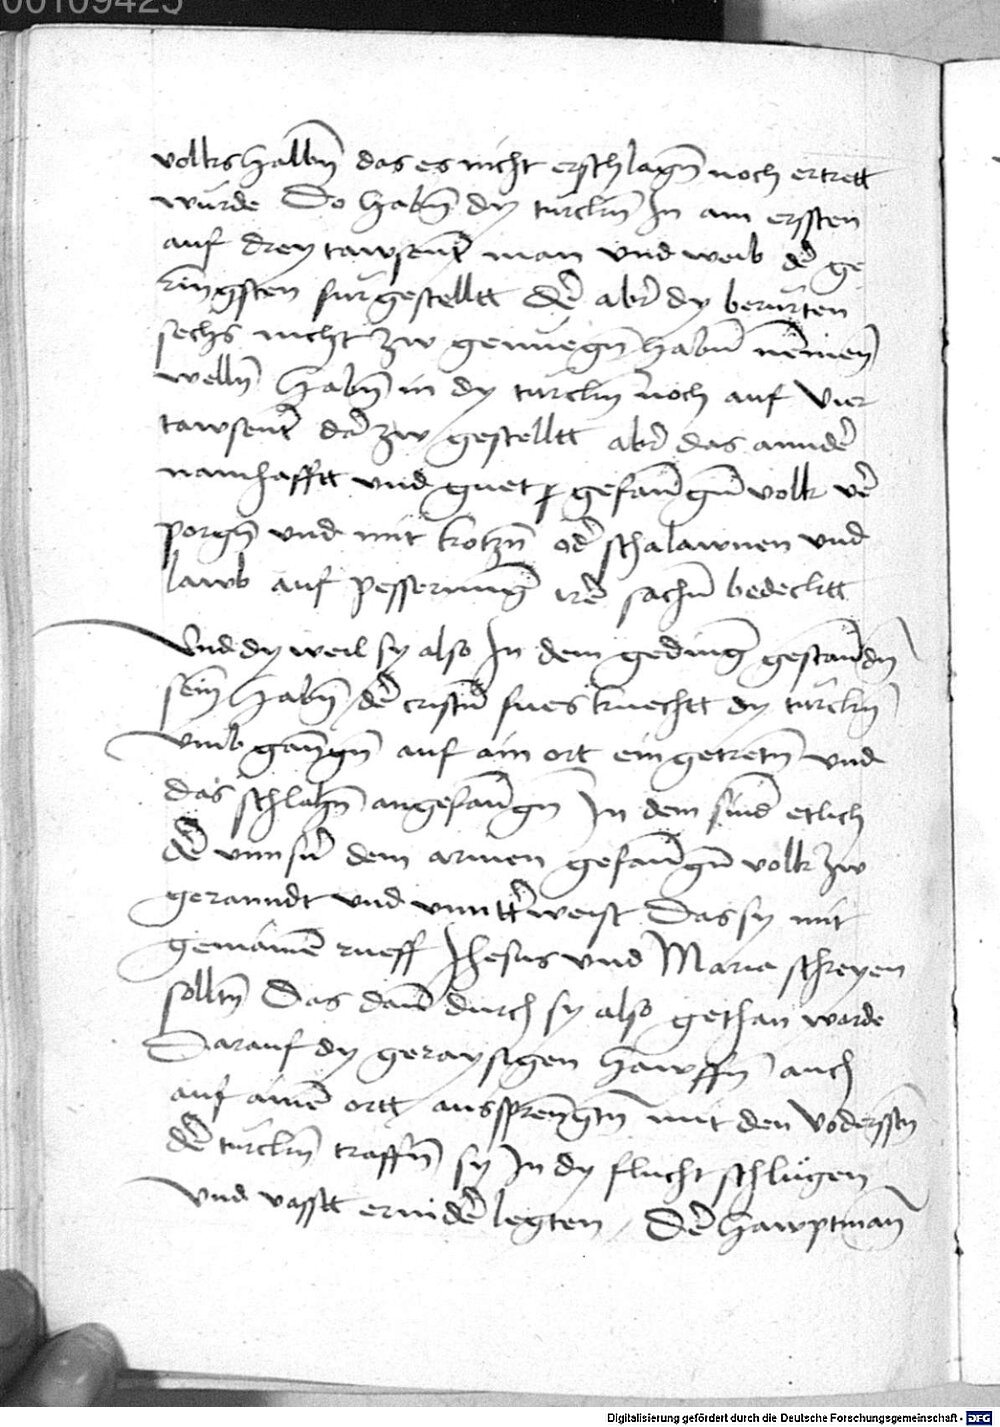 00109425
volks halbm̄ das es nicht erschlagn̄ noch ertrett
wurde Do habn̄ dy turckn̄ In am ersten
auf drey tawsent man vnd weib der ge
ringsten furgestelltt der aber dy berurten
sechs nicht zw genuegn̄ habn̄ nemen
welln̄ habn̄ in dy turckn̄ noch auf vier
tawsent dar zw gestelltt aber das annder
namhafftt vnd guet gefanngn̄ volk ver
porgn̄ vnd mit kotzn̄ oder schalawnen vnd
lawb auf pesserung irer sachn̄ bedecktt
Vnd dy weil sy also In dem geding gestanndn̄
sein habn̄ der cristn̄ fues knechtt dy turckn̄
vmb ganngn̄ auf ain ort ein getretn̄ vnd
das schlahn̄ angefanngn̄ In dem sind etlich
der vnnsern̄ dem armen gefanngn̄ volk zw
geranndt vnd vnntterweist Das sy mit
gemainem rueff Jhesus vnd Maria schreyen
solltn̄ Das dann durch sy also gethan warde
Darauf dy geraysigen hawffn̄ auch
auf ainem ortt aussprenngtn̄ mit den vodersstn̄
der turckn̄ traffn̄ sy In dy flucht schlugen
vnd vasstt ernider legten / Der hawptman
Digitalisierung gefördert durch die Deutsche Forschungsgemeinschaft - DFG